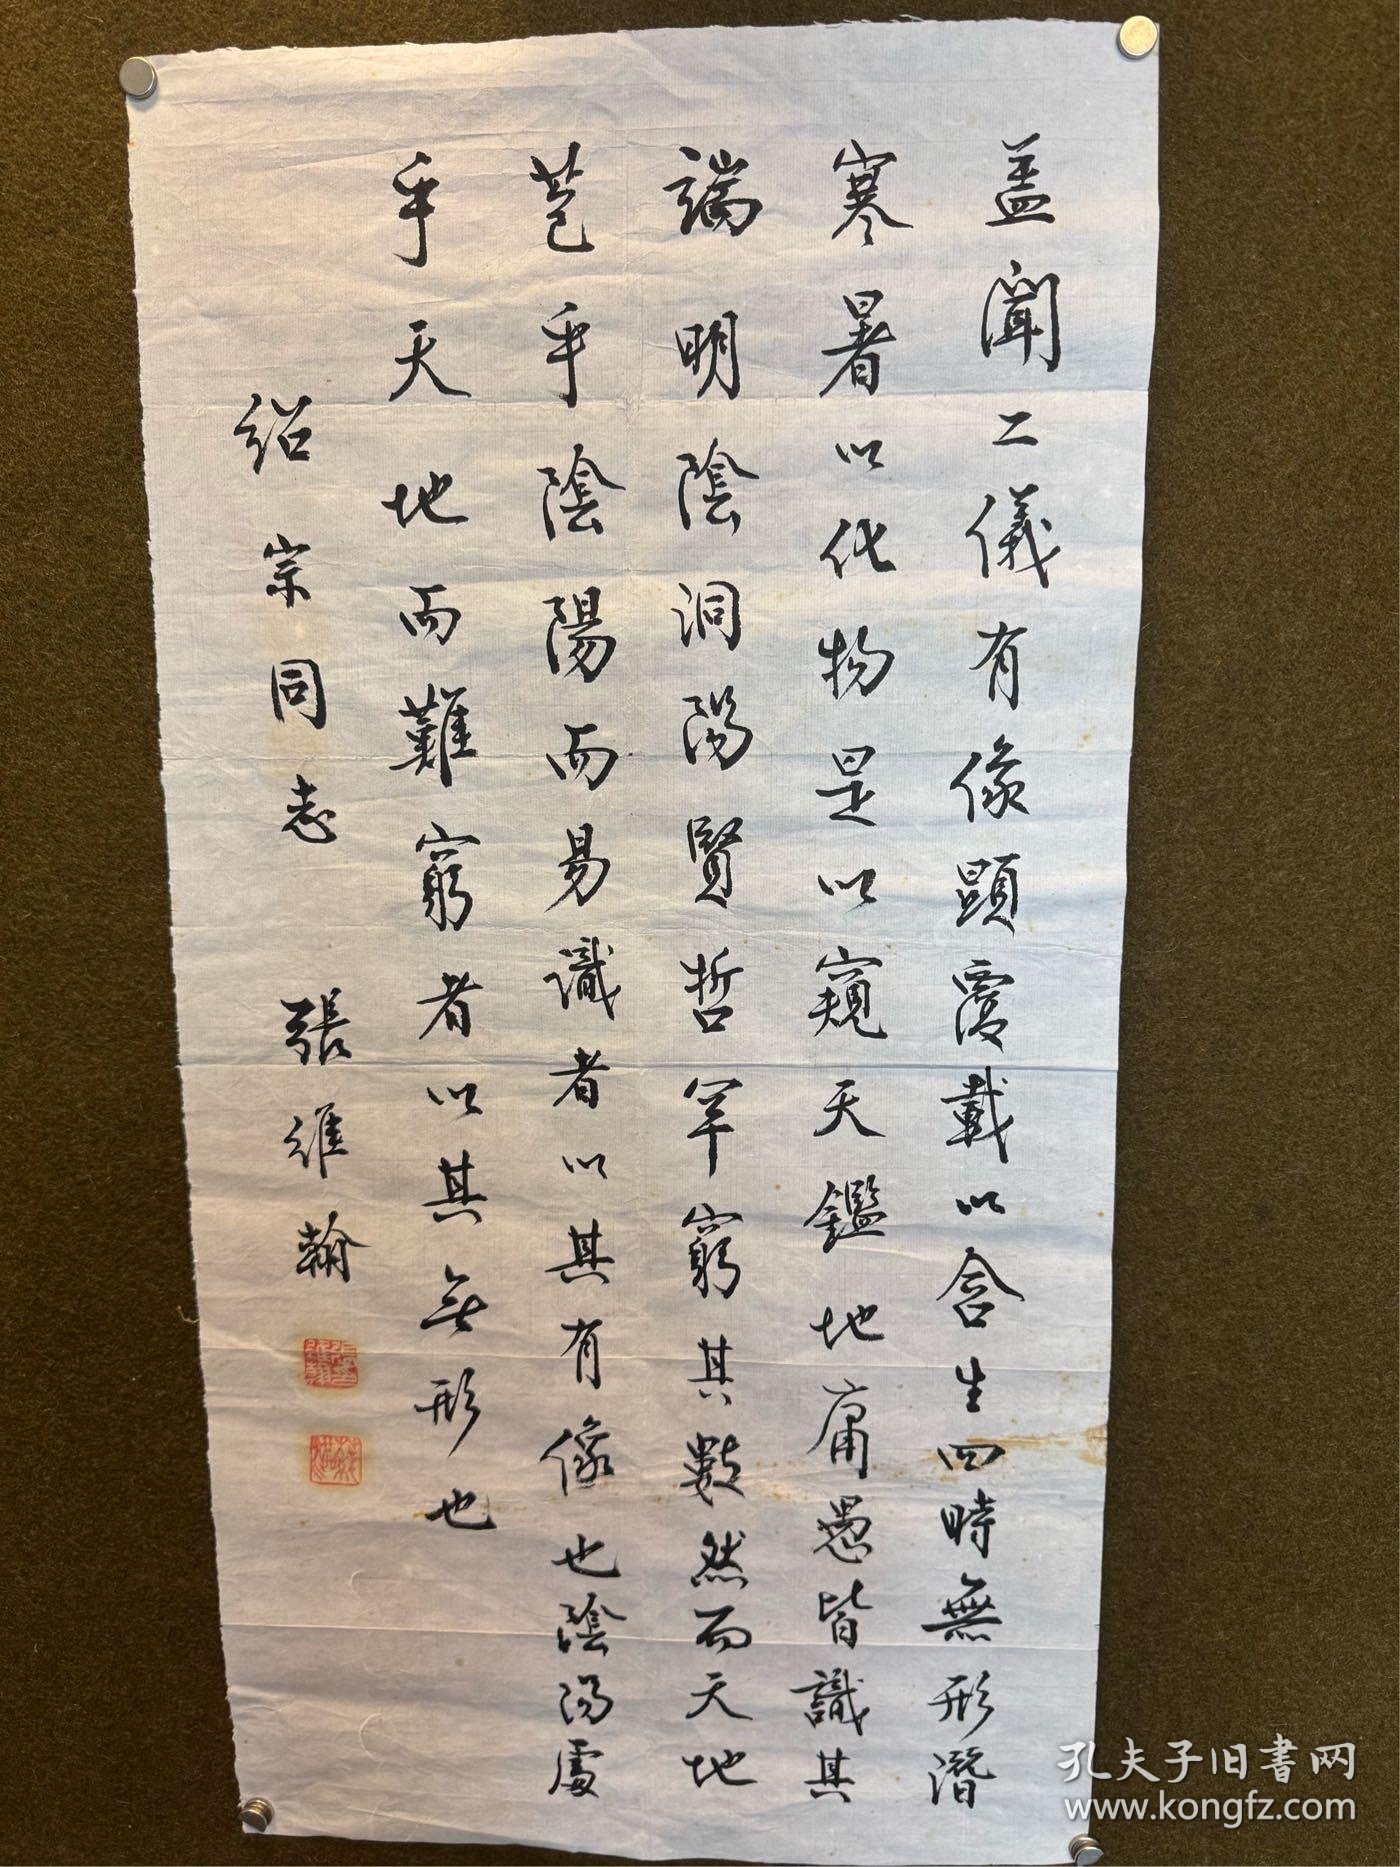 蓋聞二儀有像顯覆載以含生四時無形潛
寒暑以化物是以窺天鑑地庸愚皆識其
端明陰洞陽賢哲罕窮其數然而天地
苞乎陰陽而易識者以其有像也陰陽處
乎天地而難窮者以其無形也
紹宗同志 張維翰
孔夫子旧書网
www.kongfz.com